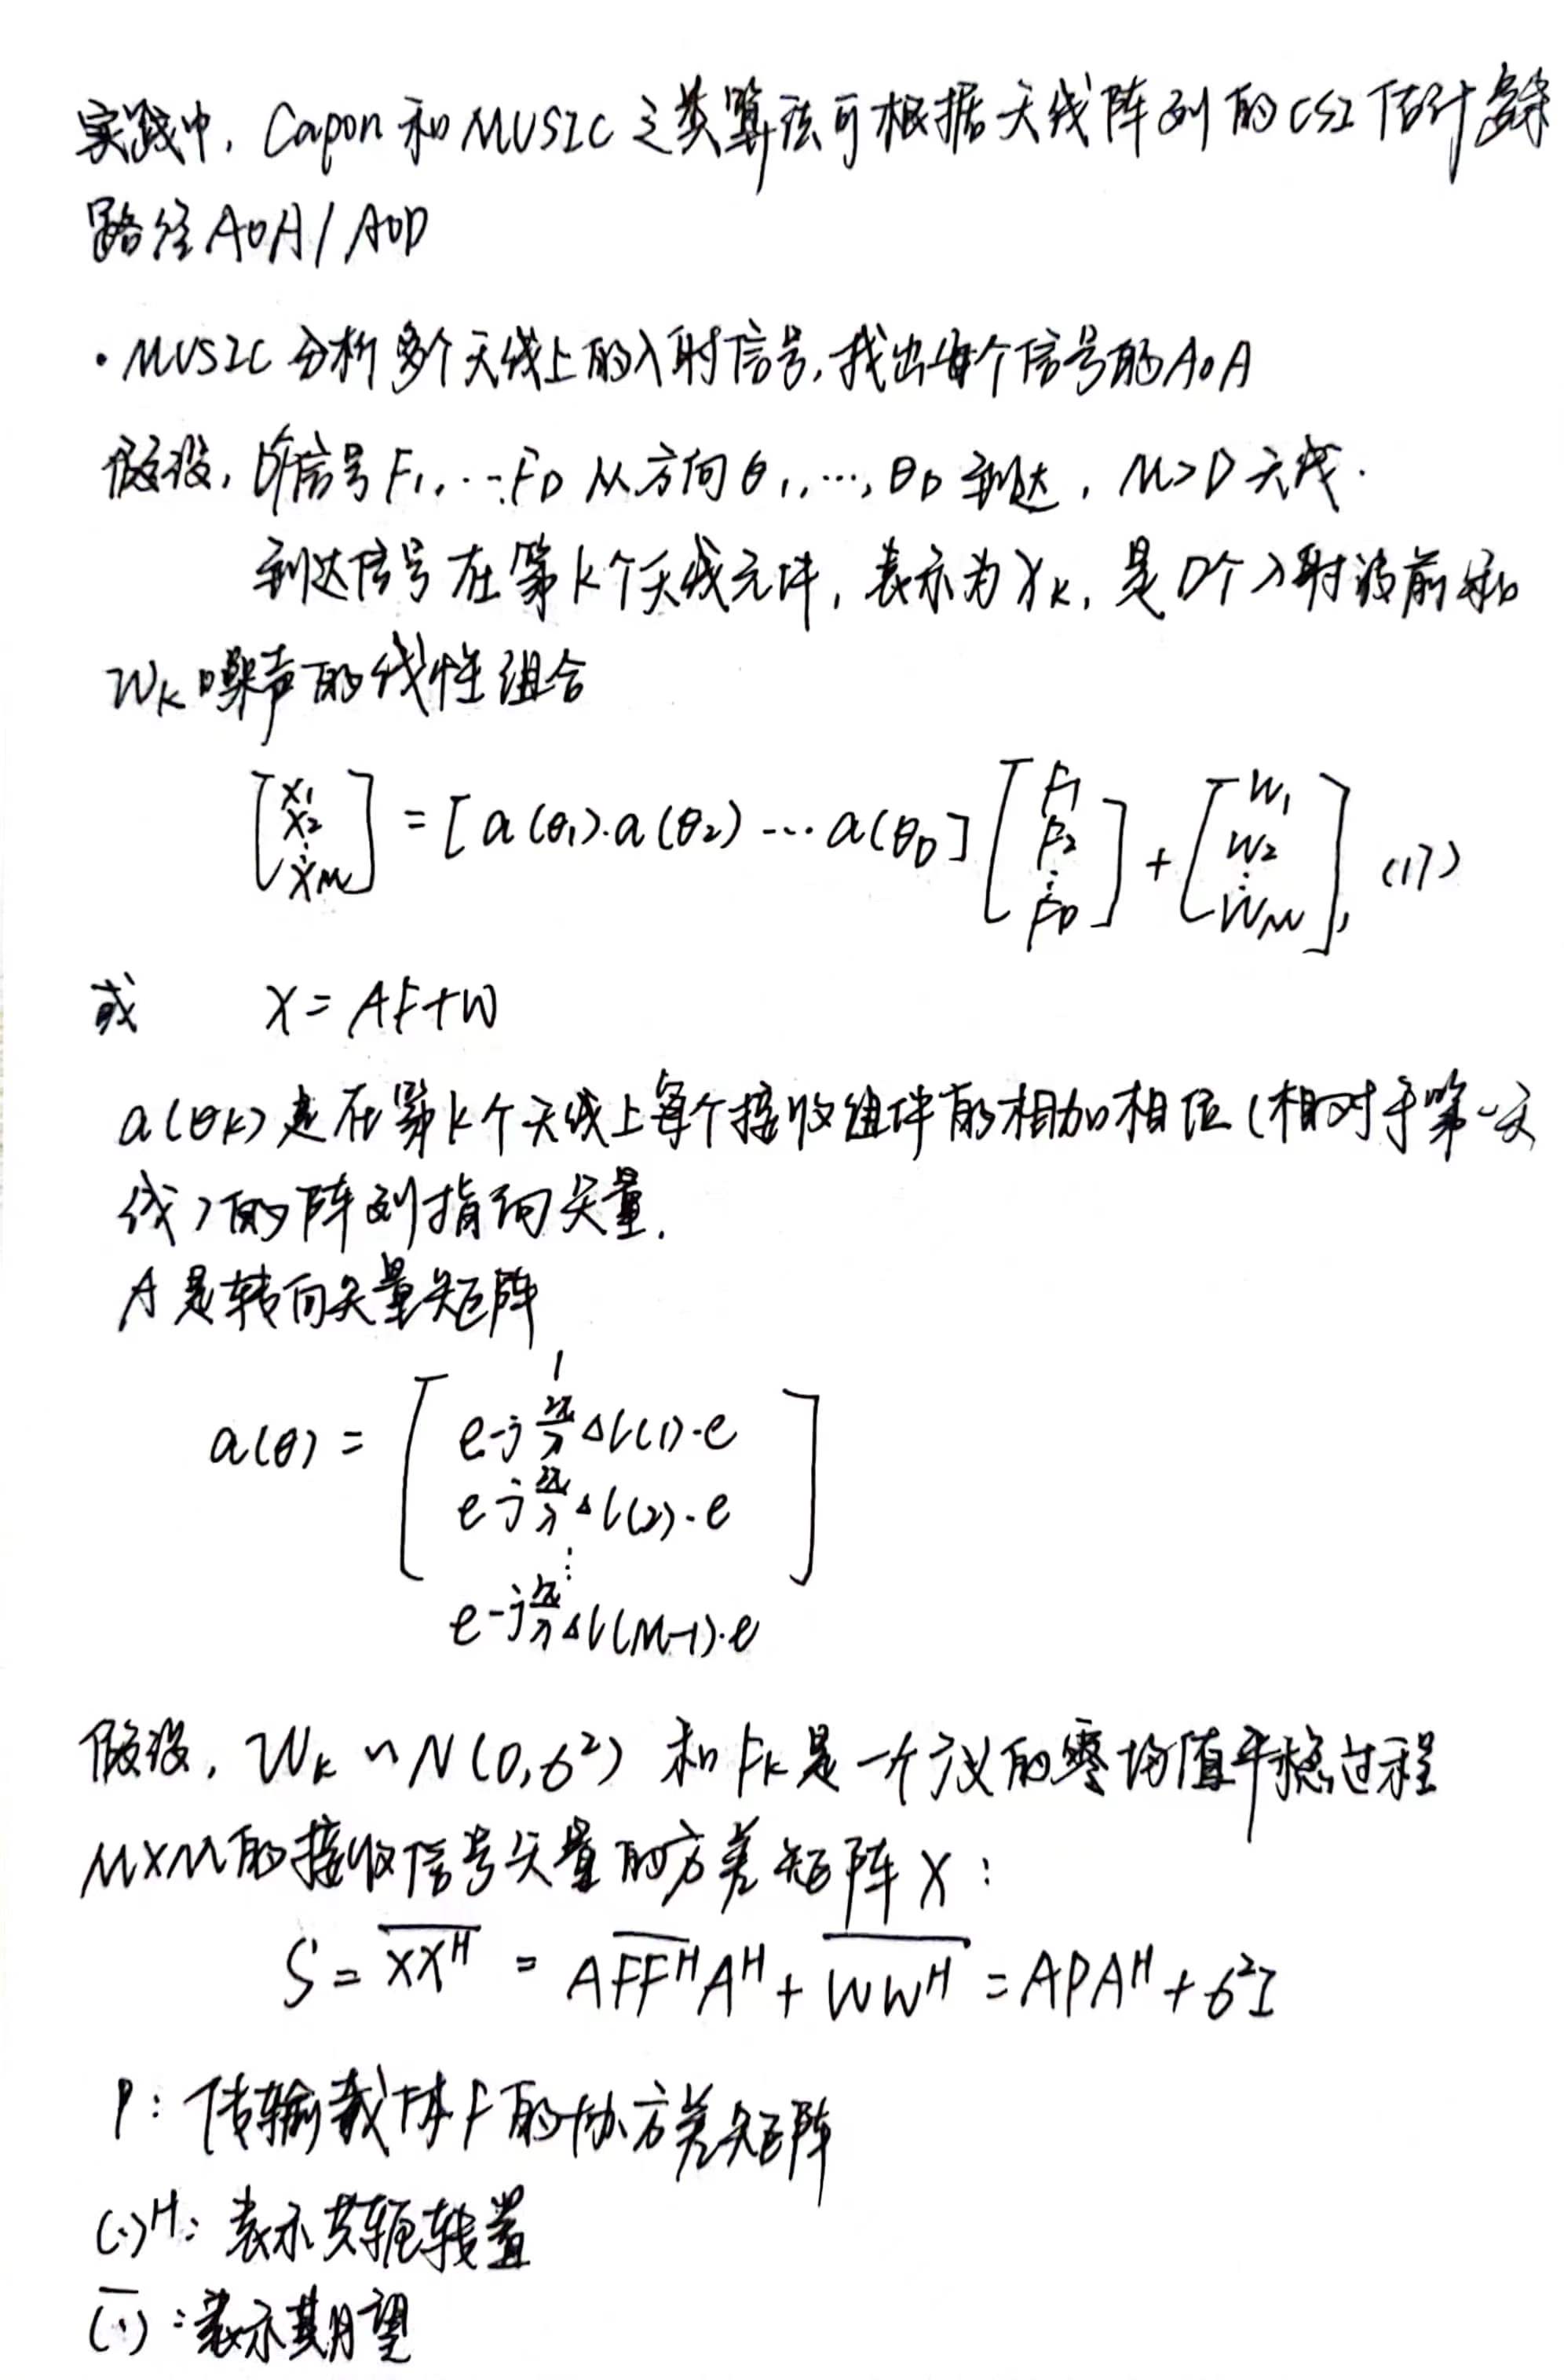 实践中, Capon 和 MUSIC 之类算法可根据天线阵列的 CSI 估计多条
路径 AoA / AOD
· MUSIC 分析多个天线上的入射信号, 找出每个信号的 AoA
假设, D个信号 F1, ... FD 从方向 θ1, ..., θD 到达, M>D 天线.
到达信号在第 k 个天线元件, 表示为 XK, 是 D个入射波前和
WK 噪声的线性组合
[X1 X2 ⋮ XM] = [a(θ1)·a(θ2) ... a(θD] [F1 F2 ⋮ FD] + [W1 W2 ⋮ WM], (17)
或 X = AF+W
a(θK) 是在第 k 个天线上每个接收组件的相加相位 (相对于第一天
线) 的阵列指向矢量.
A 是转向矢量矩阵
1
a(θ) = [ e-j 2π/λ Δl(1)·e
e-j 2π/λ Δl(2)·e
⋮
e-j 2π/λ Δl(M-1)·e ]
假设, WK ~ N(0,σ²) 和 FK 是一个广义的零均值平稳过程
M×M 的接收信号矢量的方差矩阵 X :
S = \overline{XX^H} = A\overline{FF^H}A^H + \overline{WW^H} = APA^H + σ²I
P : 传输载体 F 的协方差矩阵
(·)^H : 表示共轭转置
\overline{(·)} : 表示期望